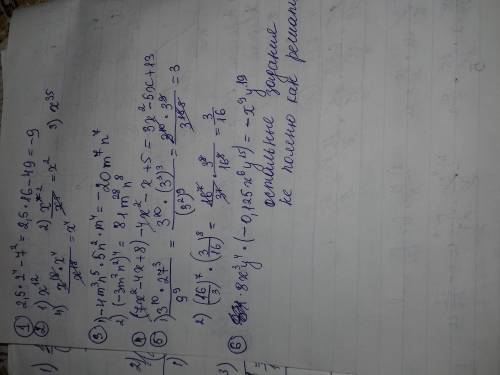 ① 2,5 · 2⁴ - 7² = 2,5 · 16 - 49 = -9
② 1) x¹² 2) = x² 3) x³⁵
4) = x⁴
③ 1) -4m³n⁵ · 5n² · m⁴ = -20m⁷n⁷
2) (-3m⁷n²)⁴ = 81m²⁸n⁸
④ (7x² - 4x + 8) - 4x² - x + 5 = 3x² - 5x + 13
⑤ 1) 3¹⁰ · 27³ / 9⁹ = 3¹⁰ · (3³)³ / (3²)⁹ = = 3
2) (16/3)⁷ · (3/16)⁸ = 16⁷/3⁷ · 3⁸/16⁸ = 3/16
⑥ 8x³y⁴ · (-0,125x⁶y¹⁵) = -x⁹y¹⁹
остальные задания
не помню как решать